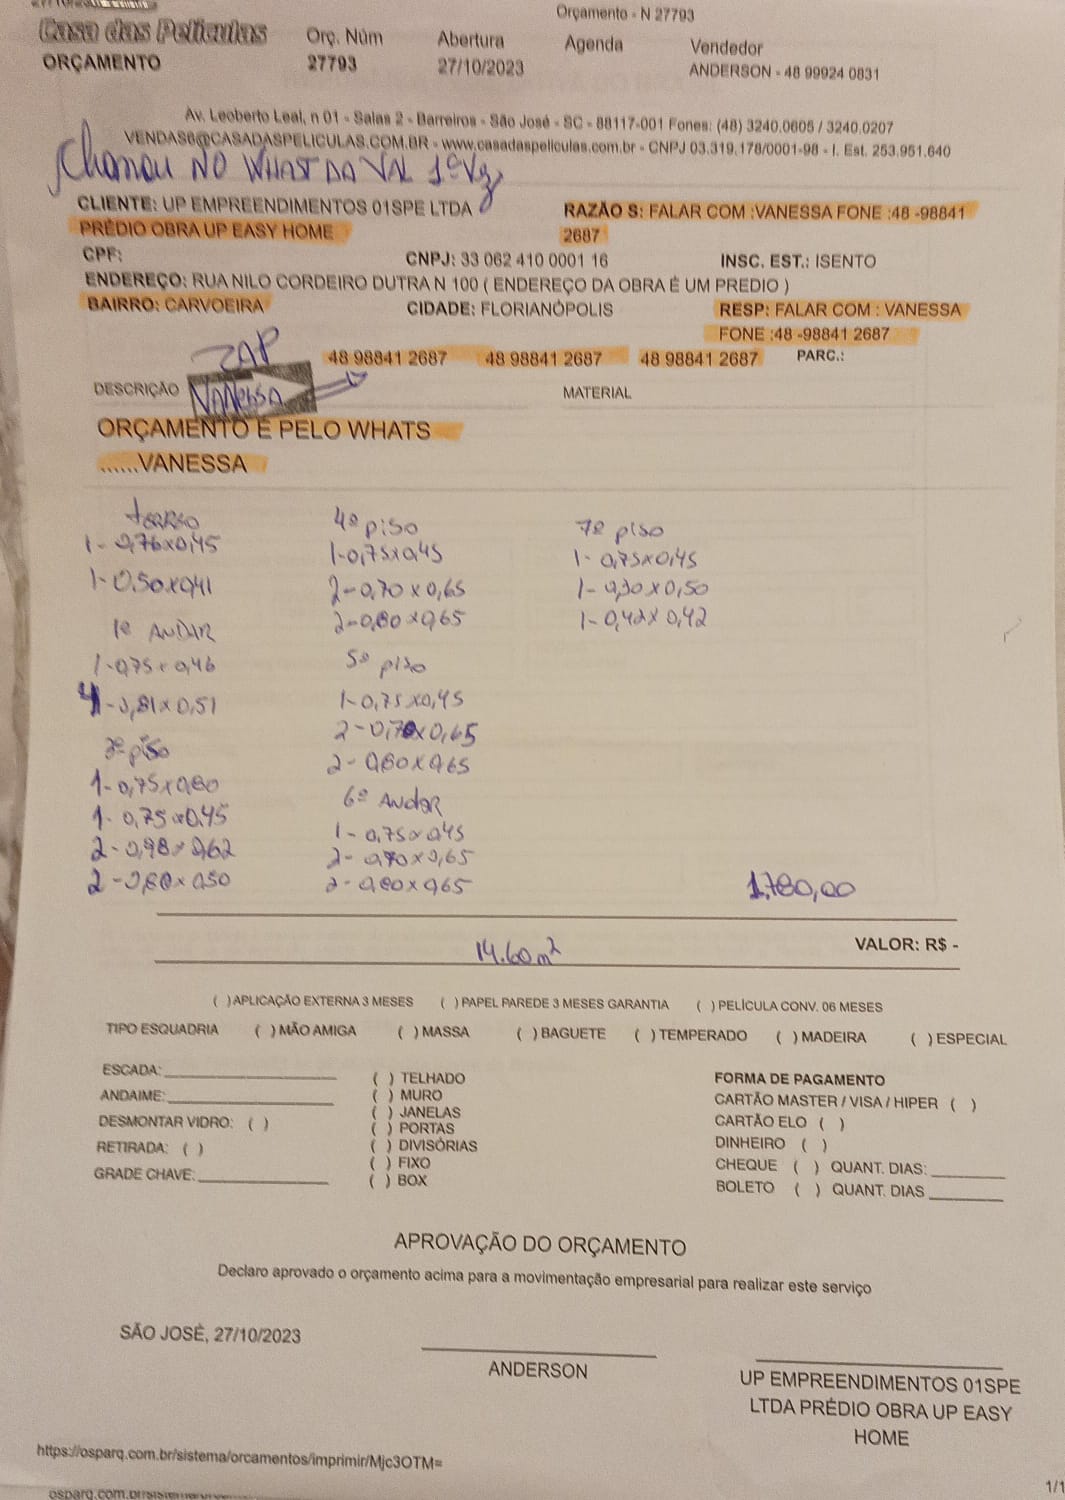 Orçamento - N 27793
Casa das Películas
ORÇAMENTO
Orç. Núm
27793
Abertura
27/10/2023
Agenda
Vendedor
ANDERSON - 48 99924 0831
Av. Leoberto Leal, n 01 - Salas 2 - Barreiros - São José - SC - 88117-001 Fones: (48) 3240.0605 / 3240.0207
VENDAS6@CASADASPELICULAS.COM.BR - www.casadaspeliculas.com.br - CNPJ 03.319.178/0001-98 - I. Est. 253.951.640
Chamou NO WHAST DA VAL 1ª Vez
CLIENTE: UP EMPREENDIMENTOS 01SPE LTDA
PRÉDIO OBRA UP EASY HOME
RAZÃO S: FALAR COM :VANESSA FONE :48 -98841
2687
CPF:
CNPJ: 33 062 410 0001 16
INSC. EST.: ISENTO
ENDEREÇO: RUA NILO CORDEIRO DUTRA N 100 ( ENDEREÇO DA OBRA É UM PREDIO )
BAIRRO: CARVOEIRA
CIDADE: FLORIANÓPOLIS
RESP: FALAR COM : VANESSA
FONE :48 -98841 2687
ZAP
48 98841 2687 48 98841 2687 48 98841 2687 PARC.:
DESCRIÇÃO
VANESSA
MATERIAL
ORÇAMENTO É PELO WHATS
......VANESSA
terreo
1-0,76x0,45
1-0.50x0,41
1º ANDAR
1-0,75x0,46
4-0,81x0,51
piso
1-0,75x0,80
1-0,75x0,45
2-0,98x0,62
2-0,80x0,50
4º piso
1-0,75x0,45
2-0,70x0,65
2-0,80x0,65
5º piso
1-0,75x0,45
2-0,70x0,65
2-0,80x0,65
6º ANDAR
1-0,75x0,45
2-0,70x0,65
2-0,80x0,65
7º piso
1-0,75x0,45
1-0,30x0,50
1-0,42x0,42
1.780,00
14.60m²
VALOR: R$ -
( ) APLICAÇÃO EXTERNA 3 MESES ( ) PAPEL PAREDE 3 MESES GARANTIA ( ) PELÍCULA CONV. 06 MESES
TIPO ESQUADRIA ( ) MÃO AMIGA ( ) MASSA ( ) BAGUETE ( ) TEMPERADO ( ) MADEIRA ( ) ESPECIAL
ESCADA:
ANDAIME:
DESMONTAR VIDRO: ( )
RETIRADA: ( )
GRADE CHAVE:
( ) TELHADO
( ) MURO
( ) JANELAS
( ) PORTAS
( ) DIVISÓRIAS
( ) FIXO
( ) BOX
FORMA DE PAGAMENTO
CARTÃO MASTER / VISA / HIPER ( )
CARTÃO ELO ( )
DINHEIRO ( )
CHEQUE ( ) QUANT. DIAS:
BOLETO ( ) QUANT. DIAS
APROVAÇÃO DO ORÇAMENTO
Declaro aprovado o orçamento acima para a movimentação empresarial para realizar este serviço
SÃO JOSÉ, 27/10/2023
ANDERSON
UP EMPREENDIMENTOS 01SPE
LTDA PRÉDIO OBRA UP EASY
HOME
https://osparq.com.br/sistema/orcamentos/imprimir/Mjc3OTM=
1/1